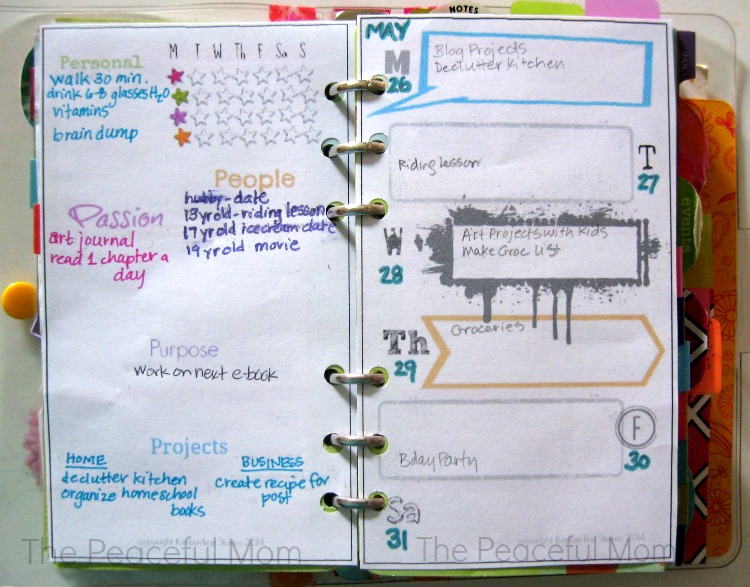 NOTES
Personal
M T W Th F Sa S
walk 30 min.
drink 6-8 glasses H2O
vitamins
brain dump
People
hubby-date
13 yr old-riding lesson
17 yr old icecream date
19 yr old movie
Passion
art journal
read 1 chapter a
day
Purpose
work on next e-book
Projects
HOME
declutter kitchen
organize homeschool
books
BUSINESS
create recipe for
post
copyright Kimberlee Stokes 2014
The Peaceful Mom
MAY
M
26
Blog Projects
Declutter Kitchen
T
27
Riding lesson
W
28
Art Projects with Kids
Make Groc List
Th
29
Groceries
F
30
Bday Party
Sa
31
copyright Kimberlee Stokes 2014
The Peaceful Mom
events